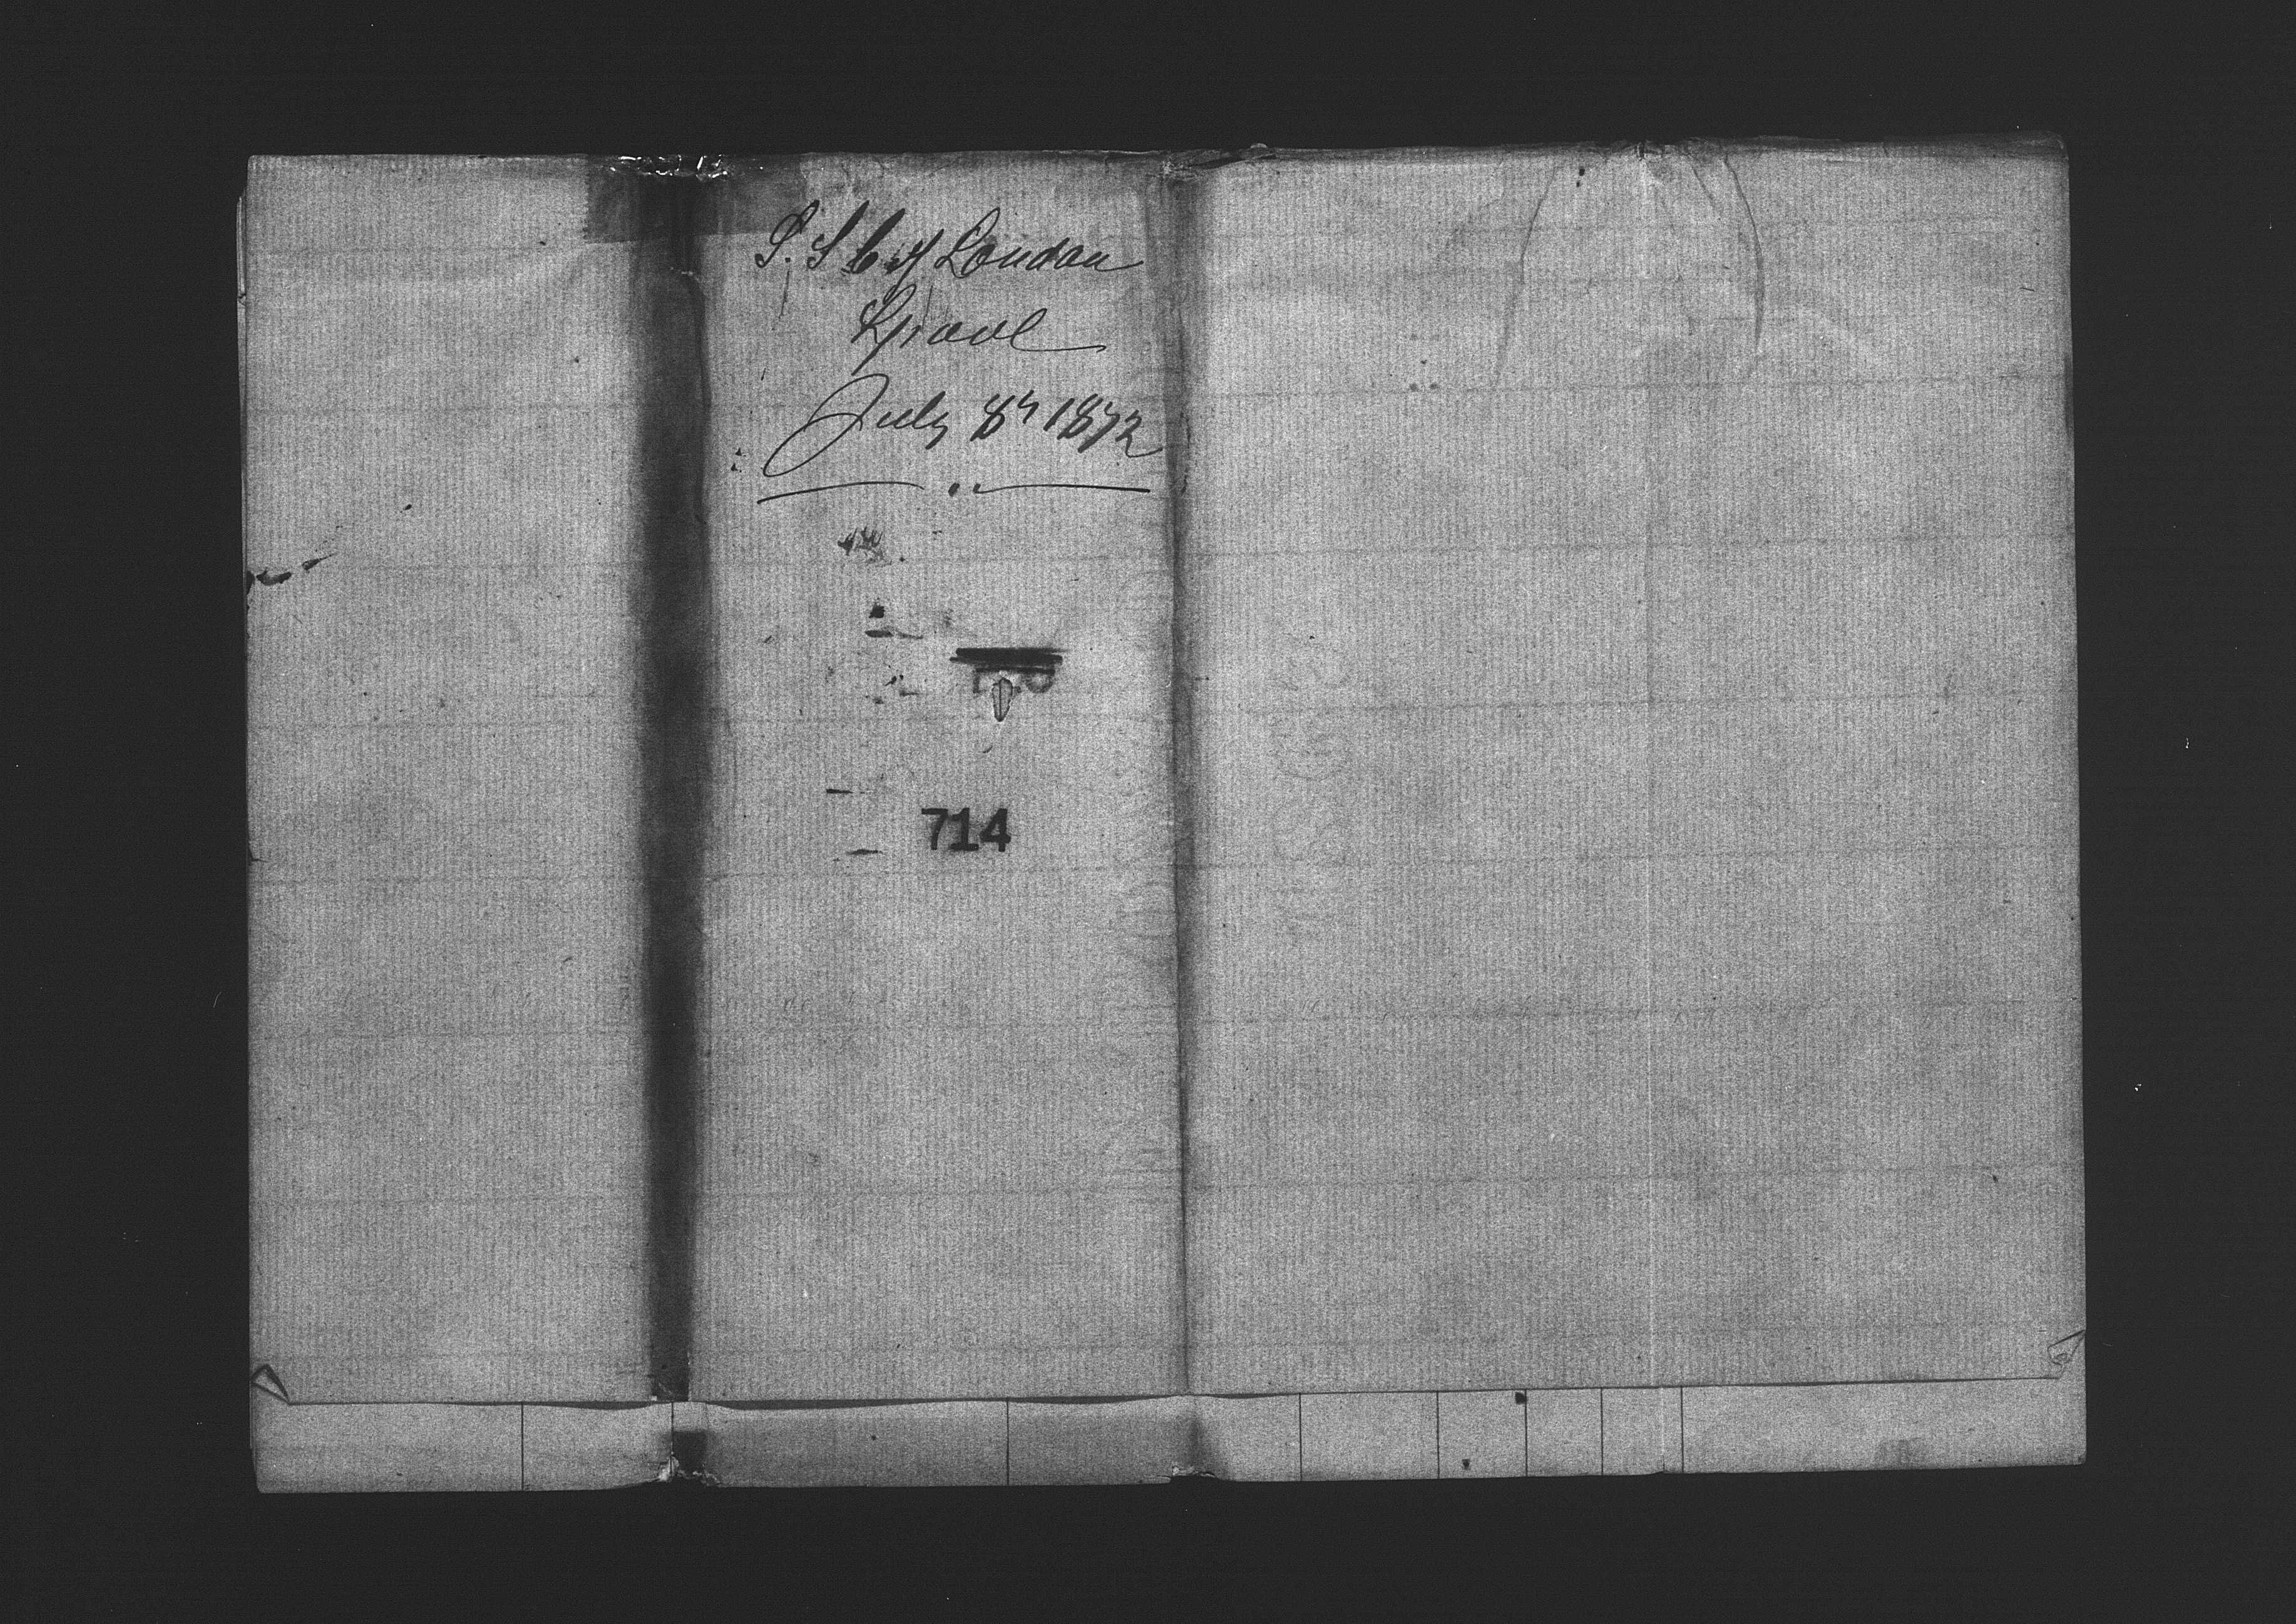 S. S. City of London
L'pool
July 8th 1872
714